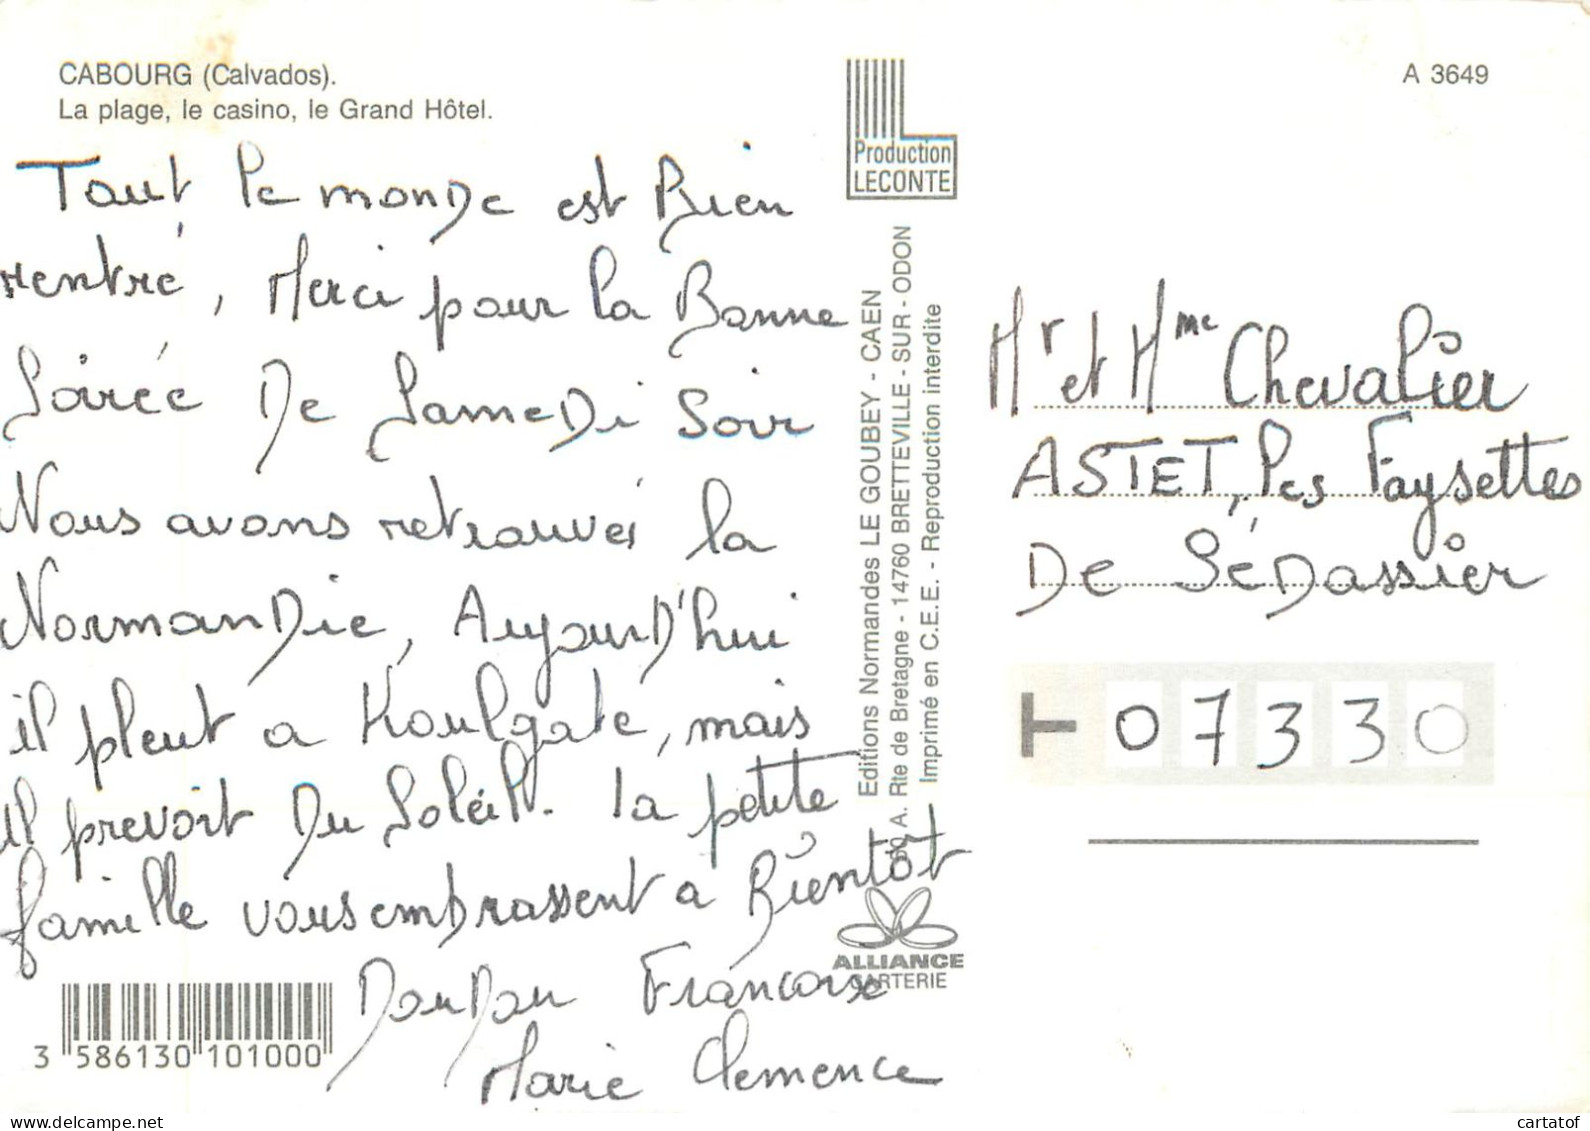 CABOURG (Calvados).
La plage, le casino, le Grand Hôtel.
A 3649
Tout le monde est Bien
rentré, Merci pour la Bonne
Soirée De SameDi Soir
Nous avons retrouvés la
NormanDie, AujourD'hui
il pleut a Houlgate, mais
il prevoit Du Soleil. la petite
famille vous embrassent a Bientôt
DouDou Francoise
Marie Clemence
3 586130 101000
Production
LECONTE
Editions Normandes LE GOUBEY - CAEN
A. Rte de Bretagne - 14760 BRETTEVILLE - SUR - ODON
Imprimé en C.E.E. - Reproduction interdite
ALLIANCE
CARTERIE
Mr et Mme Chevalier
ASTET, les Faysettes
De SéDassier
07330
delcampe.net
cartatof